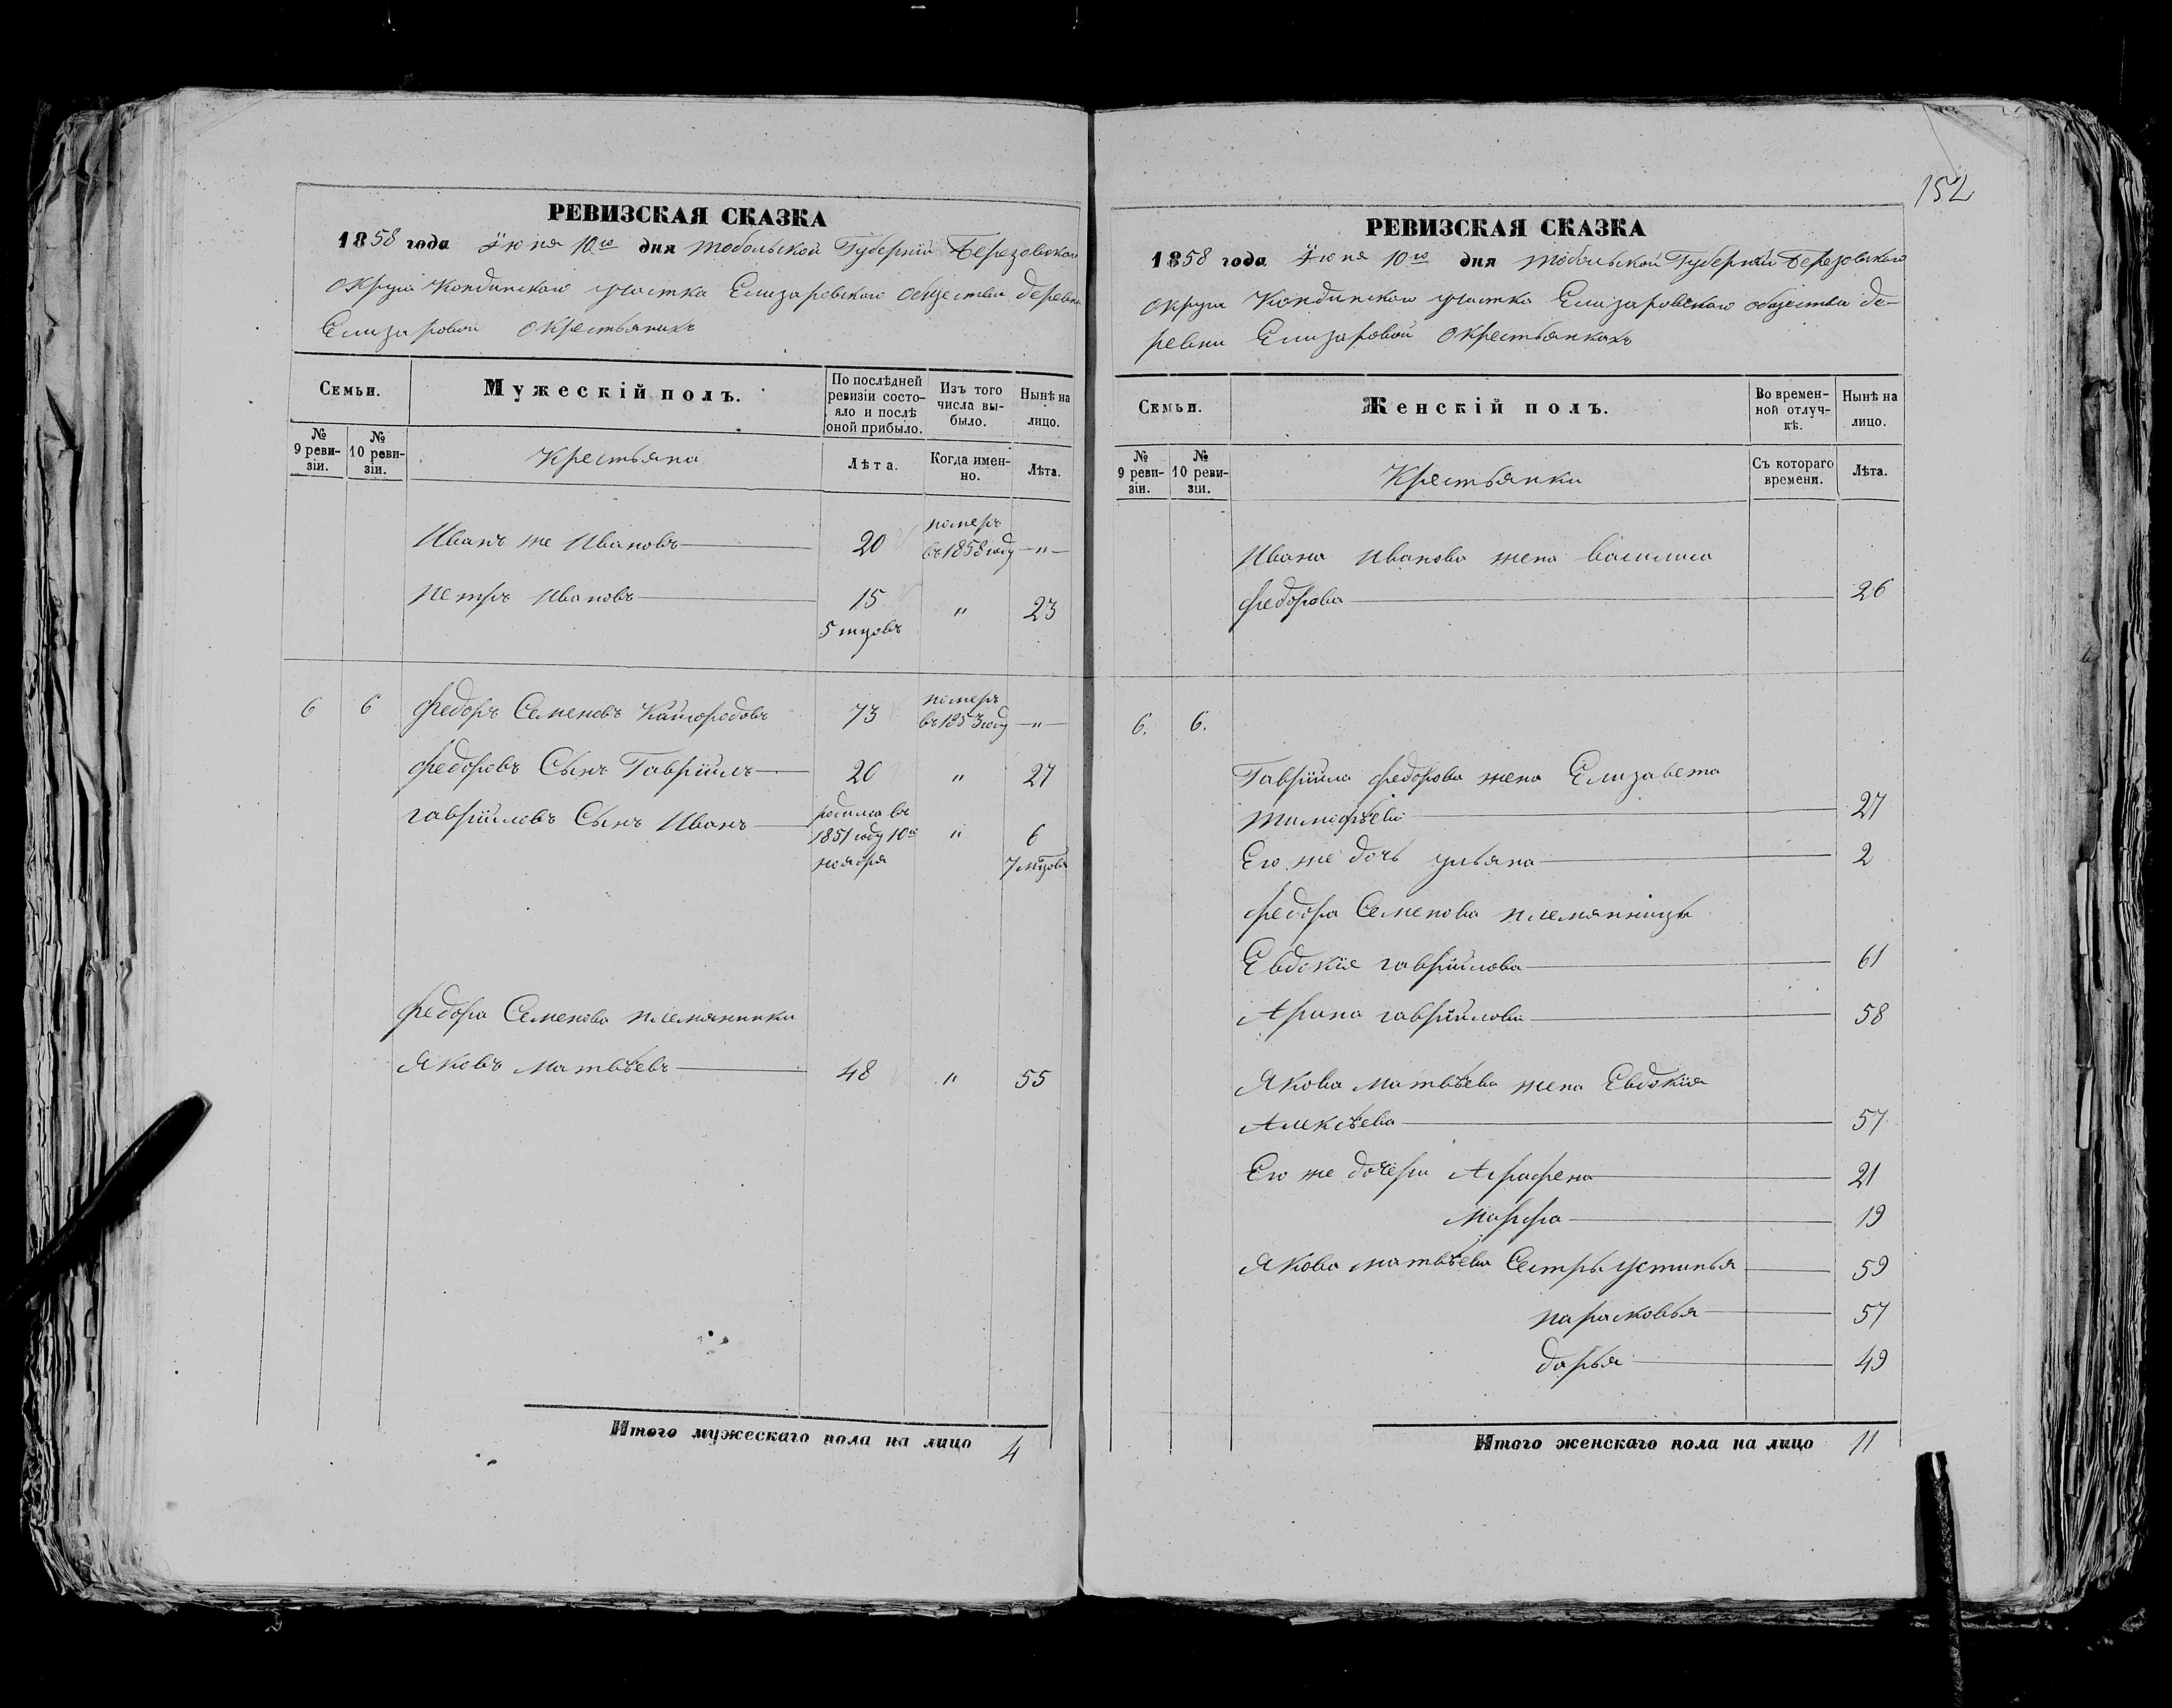 152
РЕВИЗСКАЯ СКАЗКА
1858 года Іюня 10го дня Тобольской Губерніи Березовскаго
округа Кондинскаго участка Елизаровскаго общества деревни
Елизаровой о крестьянихъ
Семьи.
Мужескій полъ.
По послѣдней ревизіи состояло и послѣ оной прибыло.
Изъ того числа выбыло.
Нынѣ на лицо.
№ 9 ревизіи.
№ 10 ревизіи.
Крестьяна
Лѣта.
Когда именно.
Лѣта.
Иванъ же Ивановъ 20 померъ въ 1858 году —"—
Петръ Ивановъ 15 " 23
5 мцовъ
6 6 Федоръ Семеновъ Кайгородовъ 73 померъ въ 1853 году —"—
Федоровъ Сынъ Гавріилъ 20 " 27
Гавріиловъ Сынъ Иванъ родился въ 1851 году 10го ноября " 6 7 мцовъ
Федора Семенова племянники
Яковъ Матвѣевъ 48 " 55
Итого мужескаго пола на лицо 4
РЕВИЗСКАЯ СКАЗКА
1858 года Іюня 10го дня Тобольской Губерніи Березовскаго
округа Кондинскаго участка Елизаровскаго общества де-
ревни Елизаровой о крестьянкахъ
Семьи.
Женскій полъ.
Во временной отлучкѣ.
Нынѣ на лицо.
№ 9 ревизіи.
№ 10 ревизіи.
Крестьянки
Съ котораго времени.
Лѣта.
Ивана Иванова жена Василиса
Федорова 26
6. 6.
Гавріила Федорова жена Елизавета
Тимофѣева 27
Его же дочь Ульяна 2
Федора Семенова племянницы
Евдокія Гавріилова 61
Арина Гавріилова 58
Якова Матвѣева жена Евдокія
Алексѣева 57
Его же дочери Аграфена 21
Марфа 19
Якова Матвѣева Сестры Устинья 59
Парасковья 57
Дарья 49
Итого женскаго пола на лицо 11